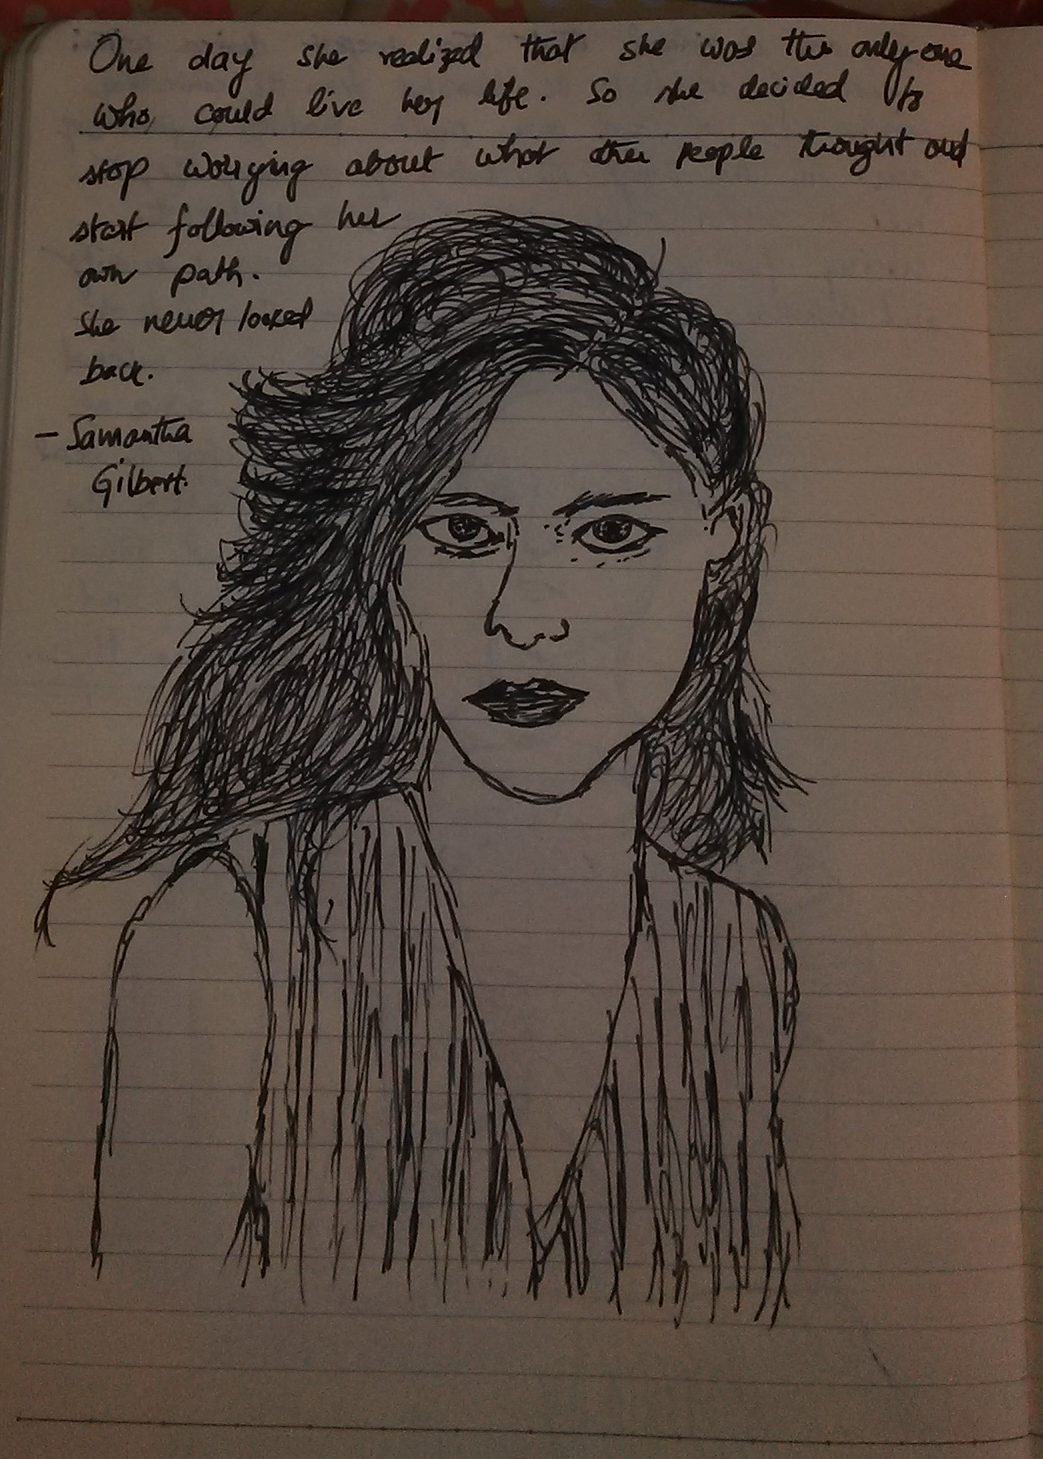 One day she realized that she was the only one
who could live her life. So she decided to
stop worrying about what other people thought and
start following her
own path.
She never looked
back.
– Samantha
Gilbert.